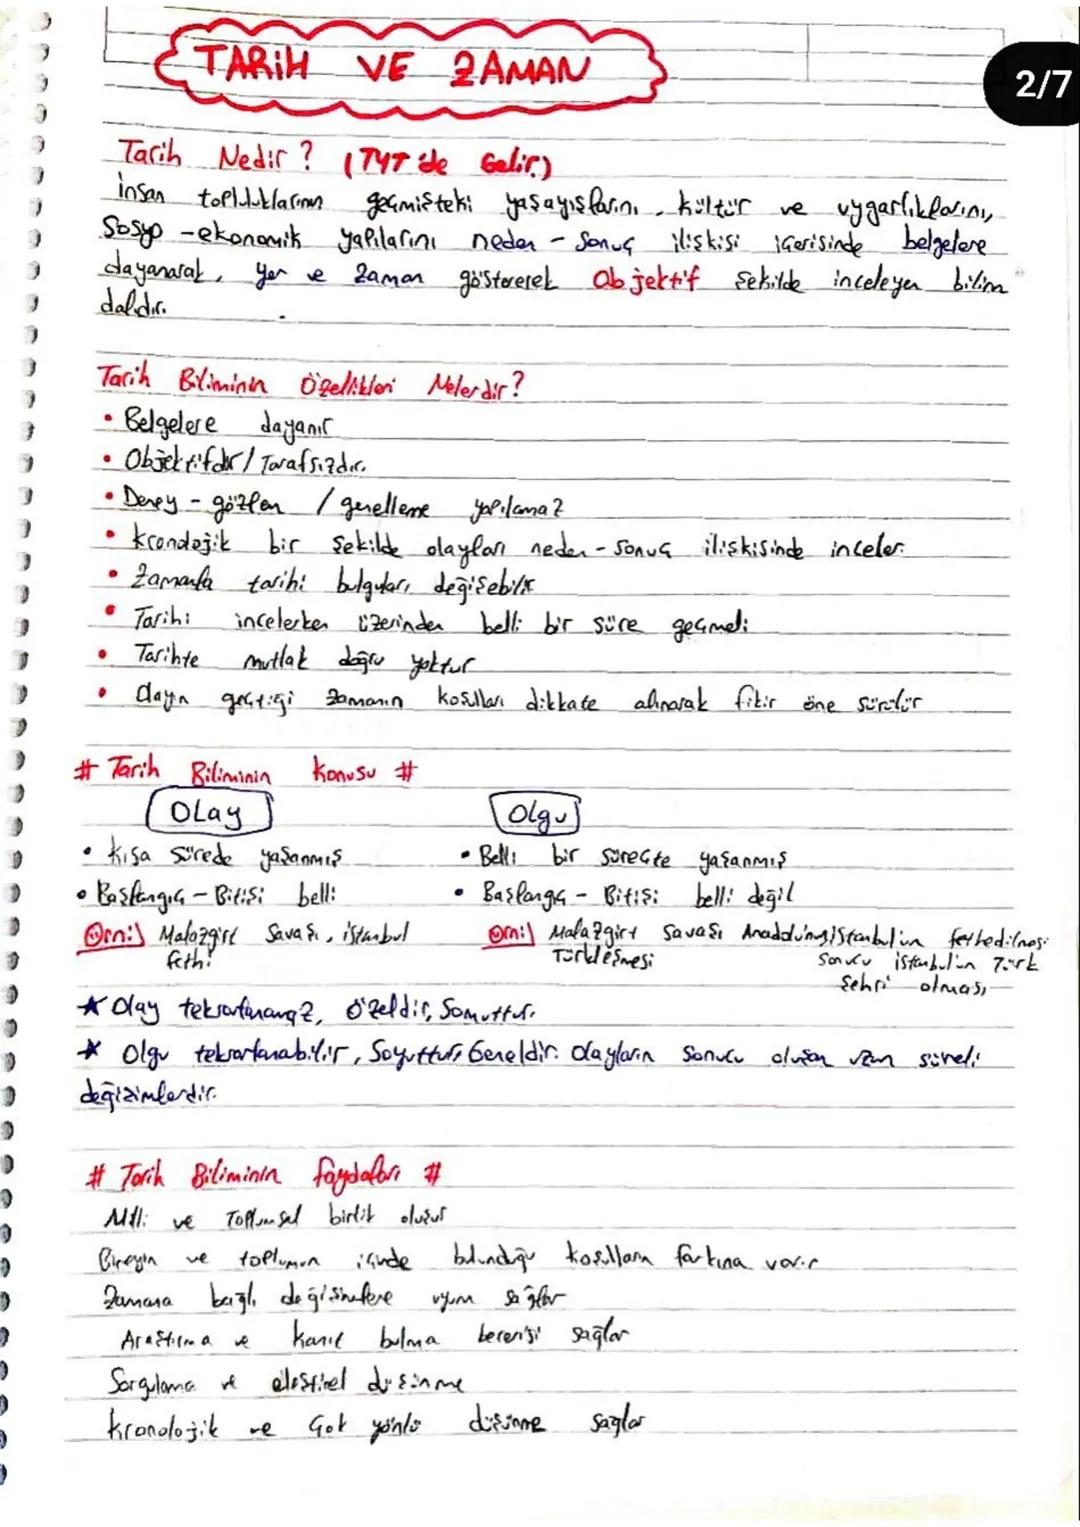 TARİH VE ZAMAN
2/7
Tarih Nedir? (TYT'de Gelir.)
İnsan topluluklarının geçmişteki yaşayışlarını, kültür ve uygarlıklarını,
Sosyo-ekonomik yapılarını neden-sonuç ilişkisi içerisinde belgelere
dayanarak, yer ve zaman göstererek Objektif şekilde inceleyen bilim
dalıdır.
Tarih Biliminin Özellikleri Nelerdir?
• Belgelere dayanır
• Objektifdir/Tarafsızdır.
• Deney-gözlem / genelleme yapılamaz
• Kronolojik bir şekilde olayları neden-sonuç ilişkisinde inceler.
• Zamanla tarihi bulguları değişebilir
• Tarihi incelerken üzerinden belli bir süre geçmeli
• Tarihte mutlak doğru yoktur
• Olayın geçtiği zamanın koşulları dikkate alınarak fikir öne sürülür
# Tarih Biliminin Konusu #
Olay Olgu
• Kısa sürede yaşanmış • Belli bir süreçte yaşanmış
• Başlangıç-Bitişi belli • Başlangıç-Bitişi belli değil
Örn: Malazgirt Savaşı, İstanbul Örn: Malazgirt Savaşı Anadolu'nun İstanbul'un fethedilmesi
fethi Türkleşmesi sonucu İstanbul'un Türk
şehri olması
★ Olay tekrarlanamaz, özeldir, Somuttur.
★ Olgu tekrarlanabilir, Soyuttur, Geneldir. Olayların sonucu oluşan uzun süreli
değişimlerdir.
# Tarih Biliminin faydaları #
Milli ve Toplumsal birlik oluşur
Bireyin ve toplumun içinde bulunduğu koşulların farkına varır
Zamana bağlı değişimlere uyum sağlar
Araştırma ve kanıt bulma becerisi sağlar
Sorgulama ve eleştirel düşünme
Kronolojik ve Çok yönlü düşünme sağlar